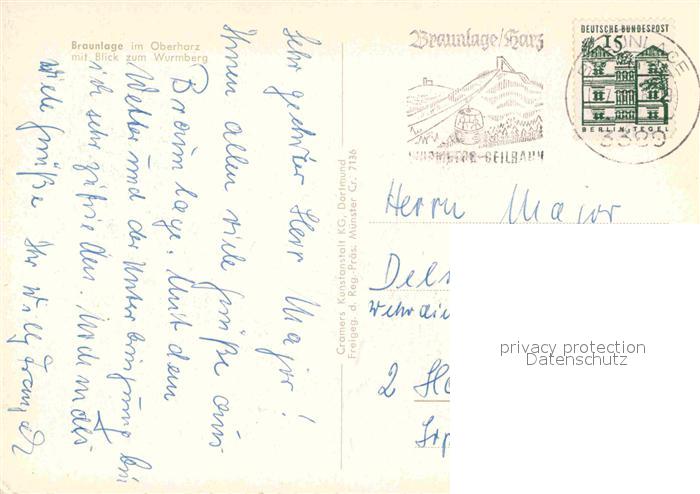 Braunlage im Oberharz
mit Blick zum Wurmberg
Sehr geehrter Herr Major!
Ihnen allen viele Grüße aus
Braunlage. Mit dem
Wetter und der Unterbringung bin
ich sehr zufrieden. Nochmals
viele Grüße Ihr Willy
Cramers Kunstanstalt KG, Dortmund
Freigeg. d. Reg.-Präs. Münster Cr. 7136
Braunlage/Harz
WURMBERG-SEILBAHN
DEUTSCHE BUNDESPOST
15
BERLIN-TEGEL
BRAUNLAGE
3389
Herrn Major
2
privacy protection
Datenschutz